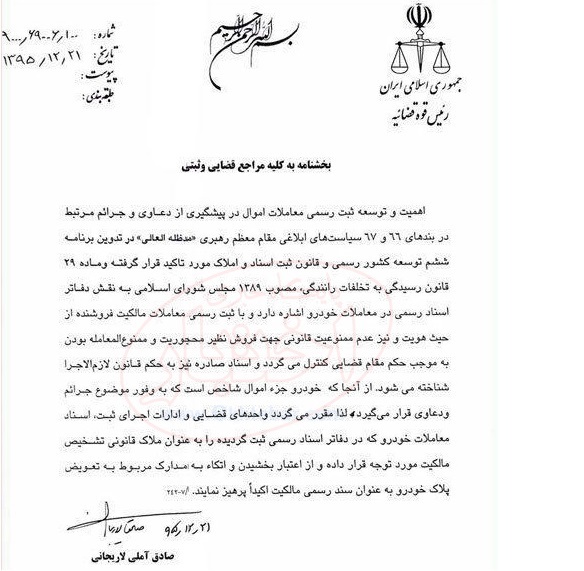 بسم الله الرحمن الرحیم
جمهوری اسلامی ایران
رئیس قوه قضائیه
شماره: ۹۰۰۰/۶۹۰۰۶/۱۰۰
تاریخ: ۱۳۹۵/۱۲/۲۱
پیوست:
طبقه‌بندی:
بخشنامه به کلیه مراجع قضایی وثبتی
اهمیت و توسعه ثبت رسمی معاملات اموال در پیشگیری از دعاوی و جرائم مرتبط
در بندهای ۶۶ و ۶۷ سیاست‌های ابلاغی مقام معظم رهبری «مدظله العالی» در تدوین برنامه
ششم توسعه کشور رسمی و قانون ثبت اسناد و املاک مورد تاکید قرار گرفته وماده ۲۹
قانون رسیدگی به تخلفات رانندگی، مصوب ۱۳۸۹ مجلس شورای اسلامی به نقش دفاتر
اسناد رسمی در معاملات خودرو اشاره دارد و با ثبت رسمی معاملات مالکیت فروشنده از
حیث هویت و نیز عدم ممنوعیت قانونی جهت فروش نظیر محجوریت و ممنوع‌المعامله بودن
به موجب حکم مقام قضایی کنترل می گردد و اسناد صادره نیز به حکم قانون لازم‌الاجرا
شناخته می شود. از آنجا که خودرو جزء اموال شاخص است که به وفور موضوع جرائم
ودعاوی قرار می‌گیرد، لذا مقرر می گردد واحدهای قضایی و ادارات اجرای ثبت، اسناد
معاملات خودرو که در دفاتر اسناد رسمی ثبت گردیده را به عنوان ملاک قانونی تشخیص
مالکیت مورد توجه قرار داده و از اعتبار بخشیدن و اتکاء به مدارک مربوط به تعویض
پلاک خودرو به عنوان سند رسمی مالکیت اکیداً پرهیز نمایند. /۲۴۲۰۷
۹۵/۱۲/۲۱
صادق آملی لاریجانی